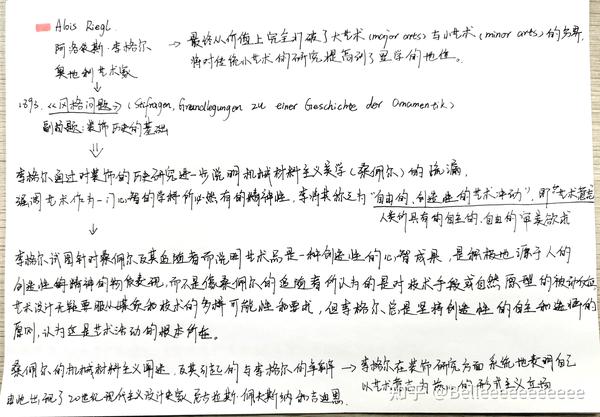 Alois Riegl.
阿洛依斯·李格尔 → 最终从价值上完全打破了大艺术(major arts)与小艺术(minor arts)的界限,
奥地利艺术家 将对传统小艺术的研究提高到了显学的地位。
1893.《风格问题》(Stilfragen, Grundlegungen zu einer Geschichte der Ornamentik)
副标题:装饰历史的基础
李格尔通过对装饰的历史研究进一步说明机械材料主义美学(桑佩尔)的疏漏,
强调艺术作为一门心智的学科所必然有的精神性,李将其称之为“自由的、创造性的艺术冲动”,即“艺术意志”
人类所具有的自主的、自由的审美欲求
李格尔试图针对桑佩尔及其追随者而说明艺术品是一种创造性的心智成果,是积极地源于人的
创造性的精神的物质表现,而不是像桑佩尔的追随者所认为的是对技术手段或自然原理的被动反应
艺术设计无疑要服从媒介和技术的多种可能性和要求,但李格尔总是坚持创造性的自主和选择的
原则,认为这是艺术活动的根本所在。
桑佩尔的机械材料主义阐述,及其引起的与李格尔的争辩 → 李格尔在装饰研究方面系统地表明自己
由此出现了20世纪现代主义设计史家尼古拉斯·佩夫斯纳和吉迪恩. 以艺术意志为核心的形式主义立场
知乎 @Belleeeeeeeeeeee